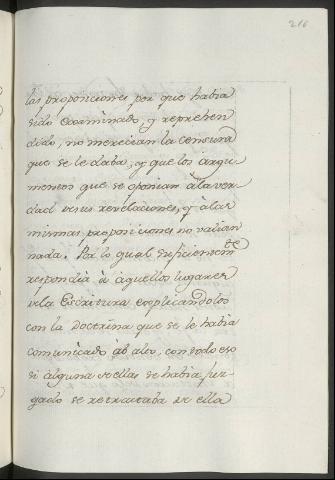 216
las proposiciones por que habia
sido examinado, y reprehen
dido, no merecian la censura
que se le daba, y que los argu
mentos que se oponian à la ver
dad de sus revelaciones, y à las
mismas proposiciones no valian
nada. Por lo qual suficientemte
respondia à aquellos lugares
de la Escritura explicandolos
con la Doctrina que se le habia
comunicado ab alto, con todo eso
si alguna de ellas se habia juz-
gado se retractaba de ella